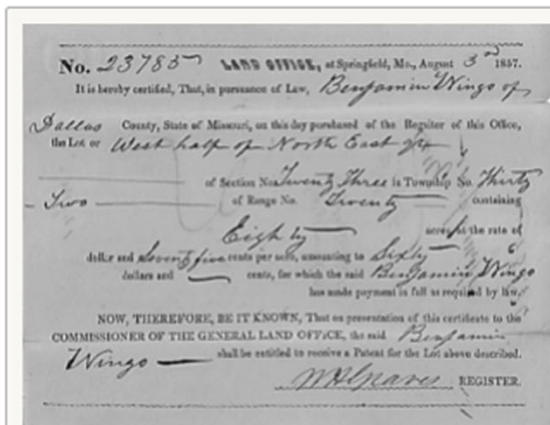 No. 23785 LAND OFFICE, at Springfield, Mo., August 3rd 1857.
It is hereby certified, That, in pursuance of Law, Benjamin Wingo of
Dallas County, State of Missouri, on this day purchased of the Register of this Office,
the Lot or West half of North East qr
of Section No. Twenty Three in Township No. Thirty
Two of Range No. Twenty containing
Eighty acres, at the rate of
dollar and Seventy five cents per acre, amounting to Sixty
dollars and cents, for which the said Benjamin Wingo
has made payment in full as required by law.
NOW, THEREFORE, BE IT KNOWN, That on presentation of this certificate to the
COMMISSIONER OF THE GENERAL LAND OFFICE, the said Benjamin
Wingo shall be entitled to receive a Patent for the Lot above described.
W H Graves REGISTER.